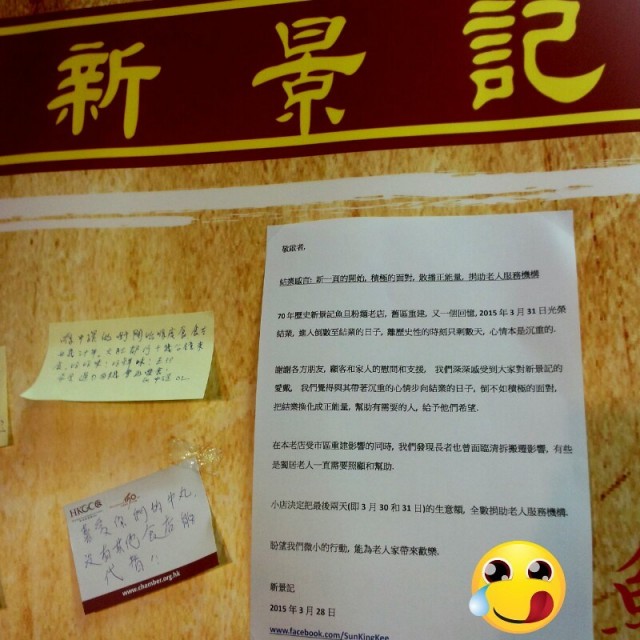 新景記
敬啟者,
結業感言: 新一頁的開始, 積極的面對, 散播正能量, 捐助老人服務機構
70 年歷史新景記魚旦粉麵老店, 舊區重建, 又一個回憶, 2015 年 3 月 31 日光榮
結業, 進入倒數至結業的日子, 離歷史性的時刻只剩數天, 心情本是沉重的.
謝謝各方朋友, 顧客和家人的慰問和支援, 我們深深感受到大家對新景記的
愛戴, 我們覺得與其帶著沉重的心情步向結業的日子, 倒不如積極的面對,
把結業換化成正能量, 幫助有需要的人, 給予他們希望.
在本老店受市區重建影響的同時, 我們發現長者也曾面臨清拆搬遷影響, 有些
是獨居老人一直需要照顧和幫助.
小店決定把最後兩天(即 3 月 30 和 31 日)的生意額, 全數捐助老人服務機構.
盼望我們微小的行動, 能為老人家帶來歡樂.
新景記
2015 年 3 月 28 日
www.facebook.com/SunKingKee
HKGCC
喜愛你們的牛丸,
沒有其他食店能
代替!!
www.chamber.org.hk